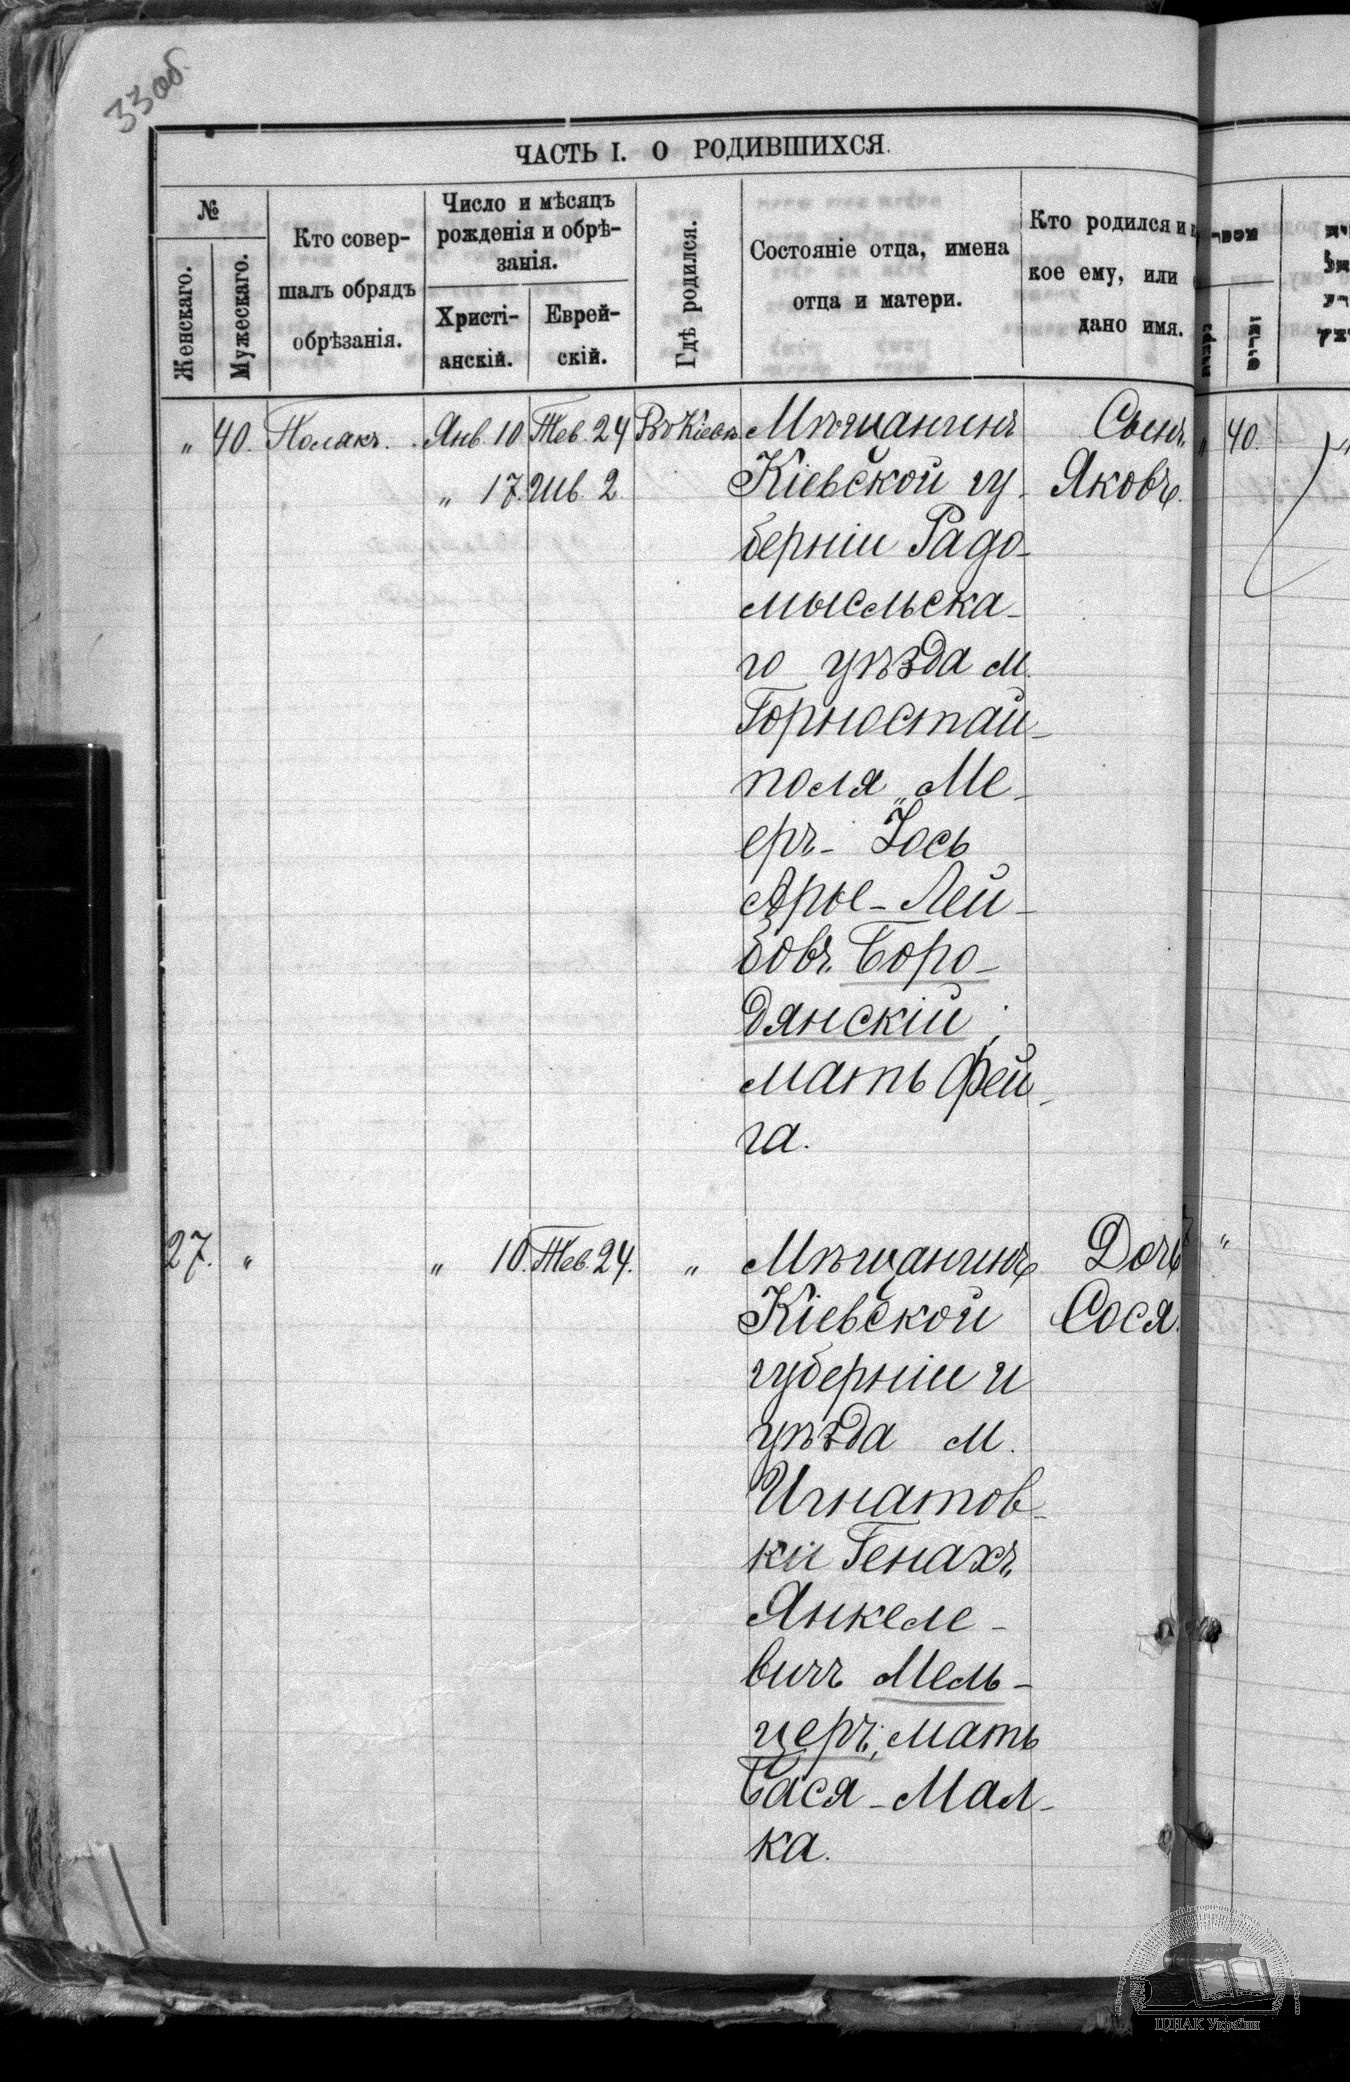 33 об.
ЧАСТЬ I. О РОДИВШИХСЯ.
№
Женскаго.
Мужескаго.
Кто совер-
шалъ обрядъ
обрѣзанія.
Число и мѣсяцъ
рожденія и обрѣ-
занія.
Христі-
анскій.
Еврей-
скій.
Гдѣ родился.
Состояніе отца, имена
отца и матери.
Кто родился и
кое ему, или
дано имя.
„ 40. Полякъ. Янв. 10 Тев. 24 Въ Кіевѣ Мѣщанинъ Сынъ
„ 17. Шв. 2. Кіевской гу- Яковъ.
берніи Радо-
мысльска-
го уѣзда м.
Горностай-
поля „Ме-
еръ- Іось
Арье-Лей-
бовъ Боро-
дянскій,
мать Фей-
га.
27. „ „ 10. Тев. 24. „ Мѣщанинъ Дочь
Кіевской Сося.
губерніи и
уѣзда м.
Игнатов-
ки Генахъ
Янкеле-
вичъ Мель-
церъ, мать
Бася-Мал-
ка.
„ 40. „
„
נקבות
זכרים
ЦДІАК України